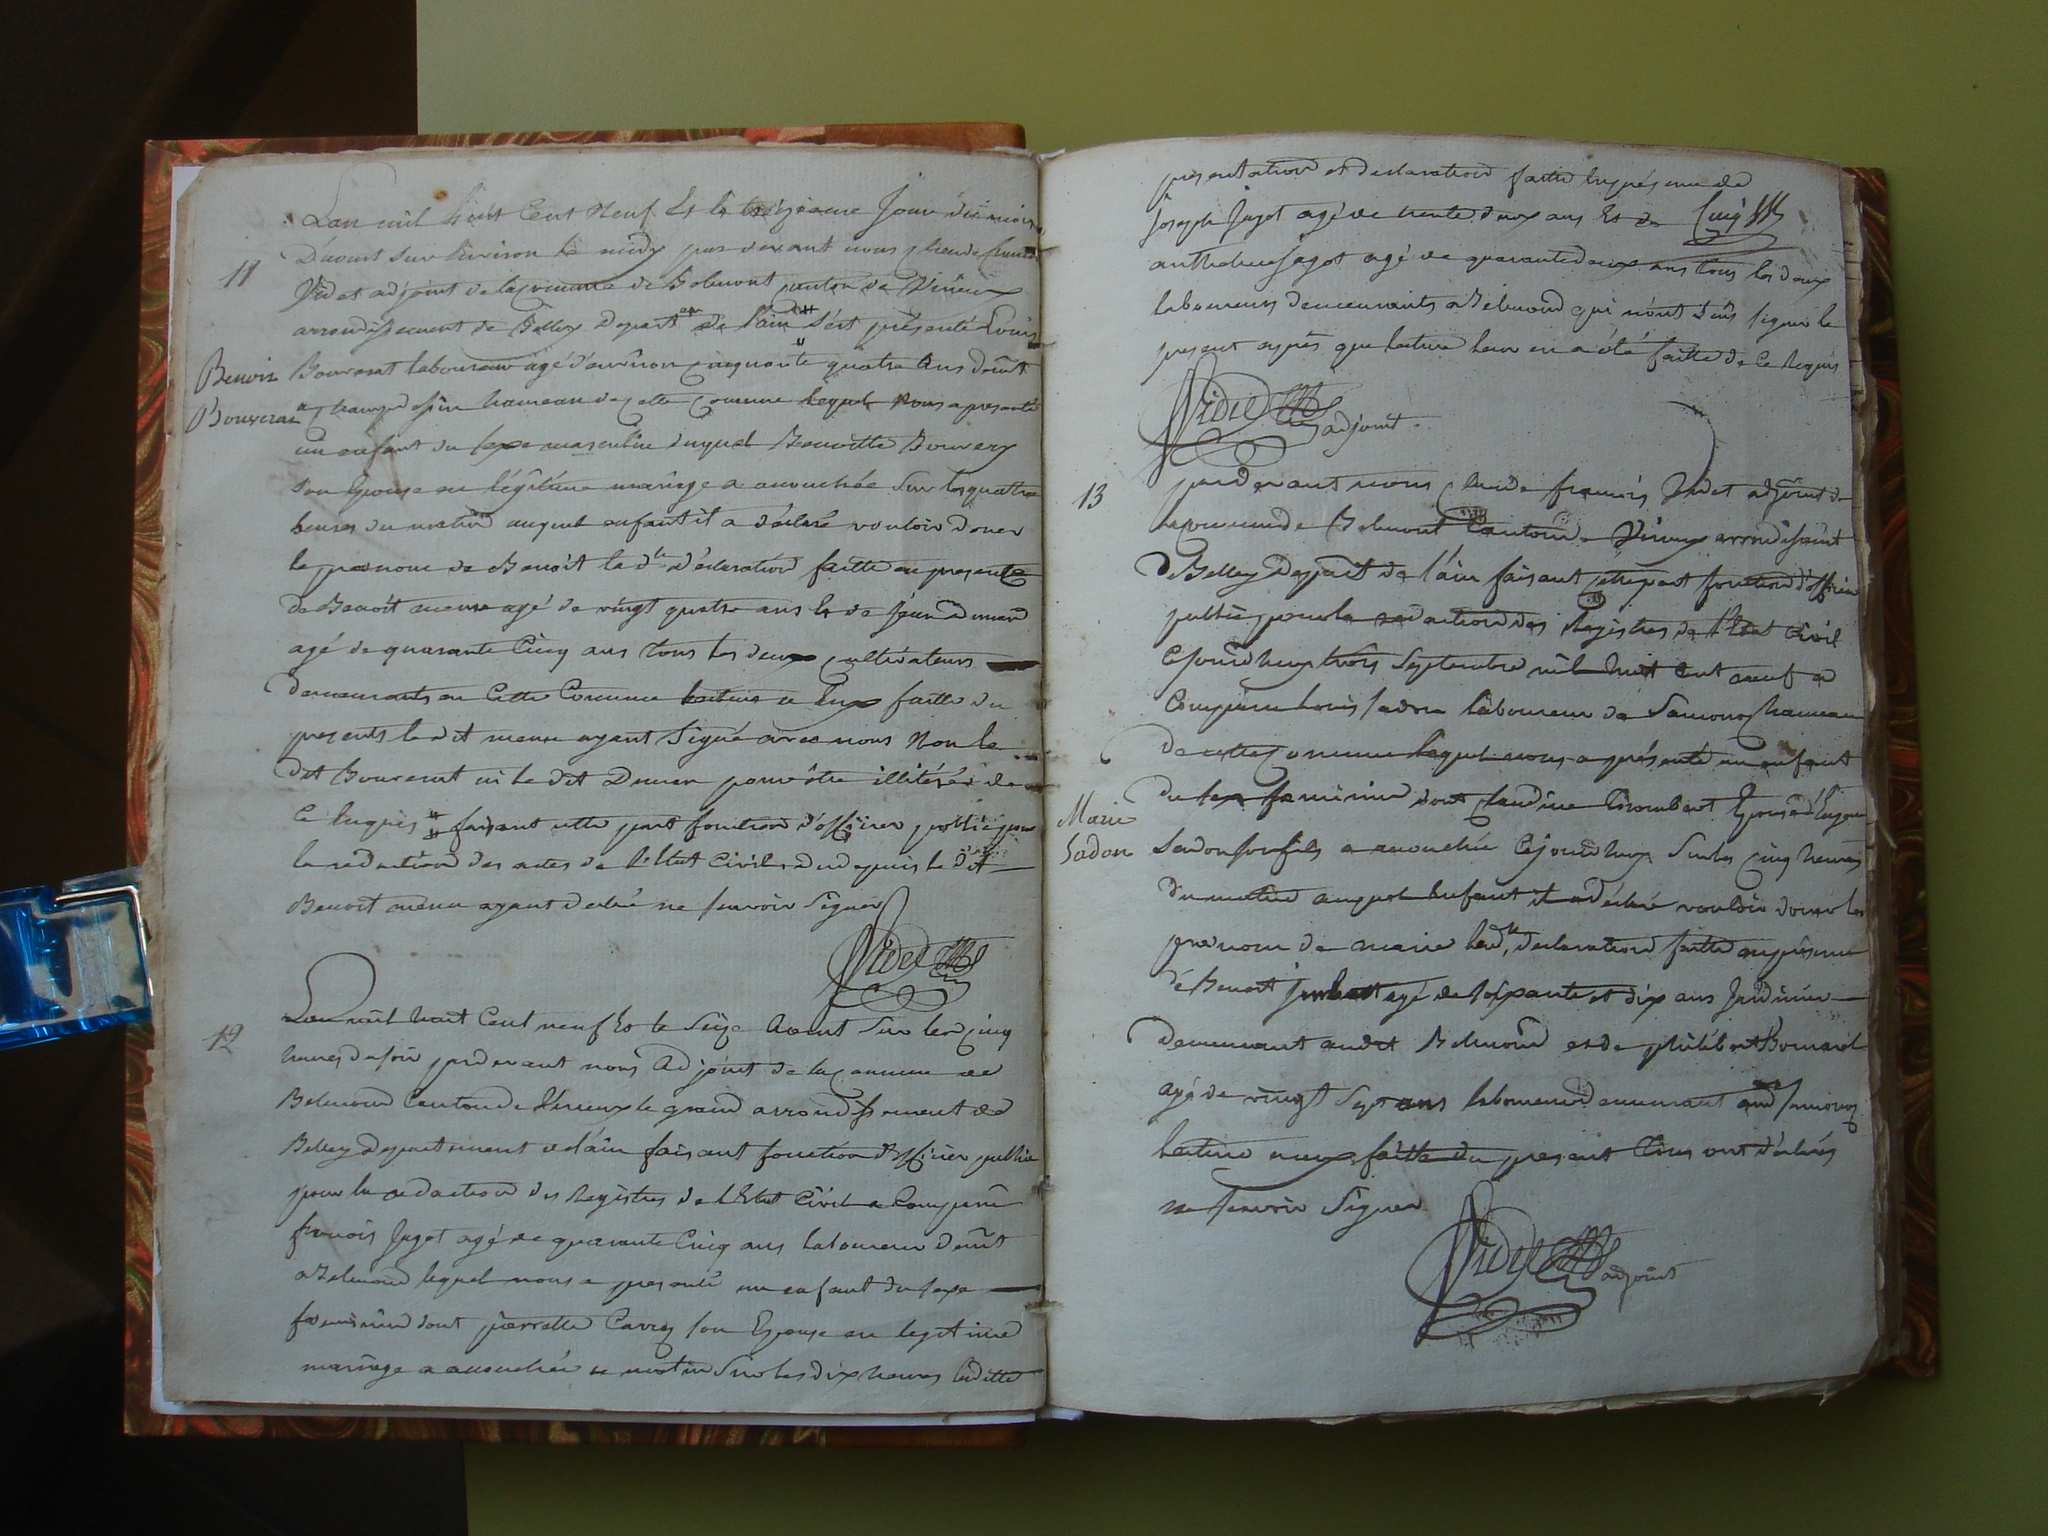 11
Benoir
Bouvrat
Lan mil huit Cent Neuf Et le treizieme Jour du mois
D'aoust Sur environ le midy par devant nous Claude francois
Videt adjoint de la Comune de Belmont canton de Virieux
arrondissement de Belley Depart.nt de l'ain S'est presenté Louis
Bouverat laboureur agé d'environ cinquante quatre Ans demt
hameau de cette Comune lequel Nous a presenté
un enfant du sexe masculin duquel Benoitte Bouvery
Son Epouse en légitime mariage a acouchée Sur les quatre
heures du matin auquel enfant il a déclaré vouloir doner
le prenom de Benoit la d.te Déclaration faitte en presence
de Benoit meme agé de vingt quatre ans Et de Jean Dumen
agé de quarante Cinq ans tous les deux cultivateurs
demeurants en Cette Comune lecture a Eux faitte du
presents le dit meme ayant Signé avec nous Non le
dit Bouverat ni le dit Dumen pour être illitérés de
Ce Enquis faisant cette part fonction d'officier public pour
la redaction des actes de l'Etat Civil et depuis le dit
Benoit meme ayant declaré ne scavoir Signer
Videt
12
Lan mil huit Cent neuf Et le Seize Aoust Sur les cinq
heures du soir pardevant nous Adjoint de la Comune de
Belmond Canton de Virieux le grand arrondissement de
Belley departement de l'ain faisant fonction d'officier public
pour la redaction des Registres de l'Etat Civil a Comparu
francois Jagot agé de quarante Cinq ans laboureur demt
a Belmond lequel nous a presenté un enfant du sexe
feminin dont pierrette Carrey son Epouse en legitime
mariage a acouchée ce matin Sur les dix heures laditte
presentation et declaration faitte en présence de
Joseph Jagot agé de trente deux ans Et de
anthelme Jagot agé de quarante deux ans tous les deux
laboureurs demeurants a Belmond qui n'ont Sçus signer le
present après que lecture leur en a été faitte de ce Requis
Videt
adjoint.
13
Marie
Sadon
pardevant nous Claude francois Videt adjoint de
la comune de Belmont Canton de Virieux arrondissemt
de Belley Depart de l'ain faisant cette part fonction d'officier
public pour la redaction des Registres de l'Etat Civil
Cejourd'huy trois Septembre mil huit Cent neuf a
Comparu Louis Sadon laboureur de Samonod hameau
de cette Comune lequel nous a présenté un enfant
du sexe feminin dont Claudine Trombert Epouse d'Eugene
Sadon son fils a acouchée Cejourd'huy Sur les cinq heures
du matin auquel Enfant il a déclaré vouloir doner le
prenom de marie lad.te declaration faitte en présence
de Benoit Jambat agé de soixante et dix ans Jardinier
demeurant audit Belmond et de philibert Bornard
agé de vingt Sept ans laboureur demeurant aud Samonod
lecture a eux faitte du present tous ont déclarés
ne scavoir Signer
Videt
adjoint